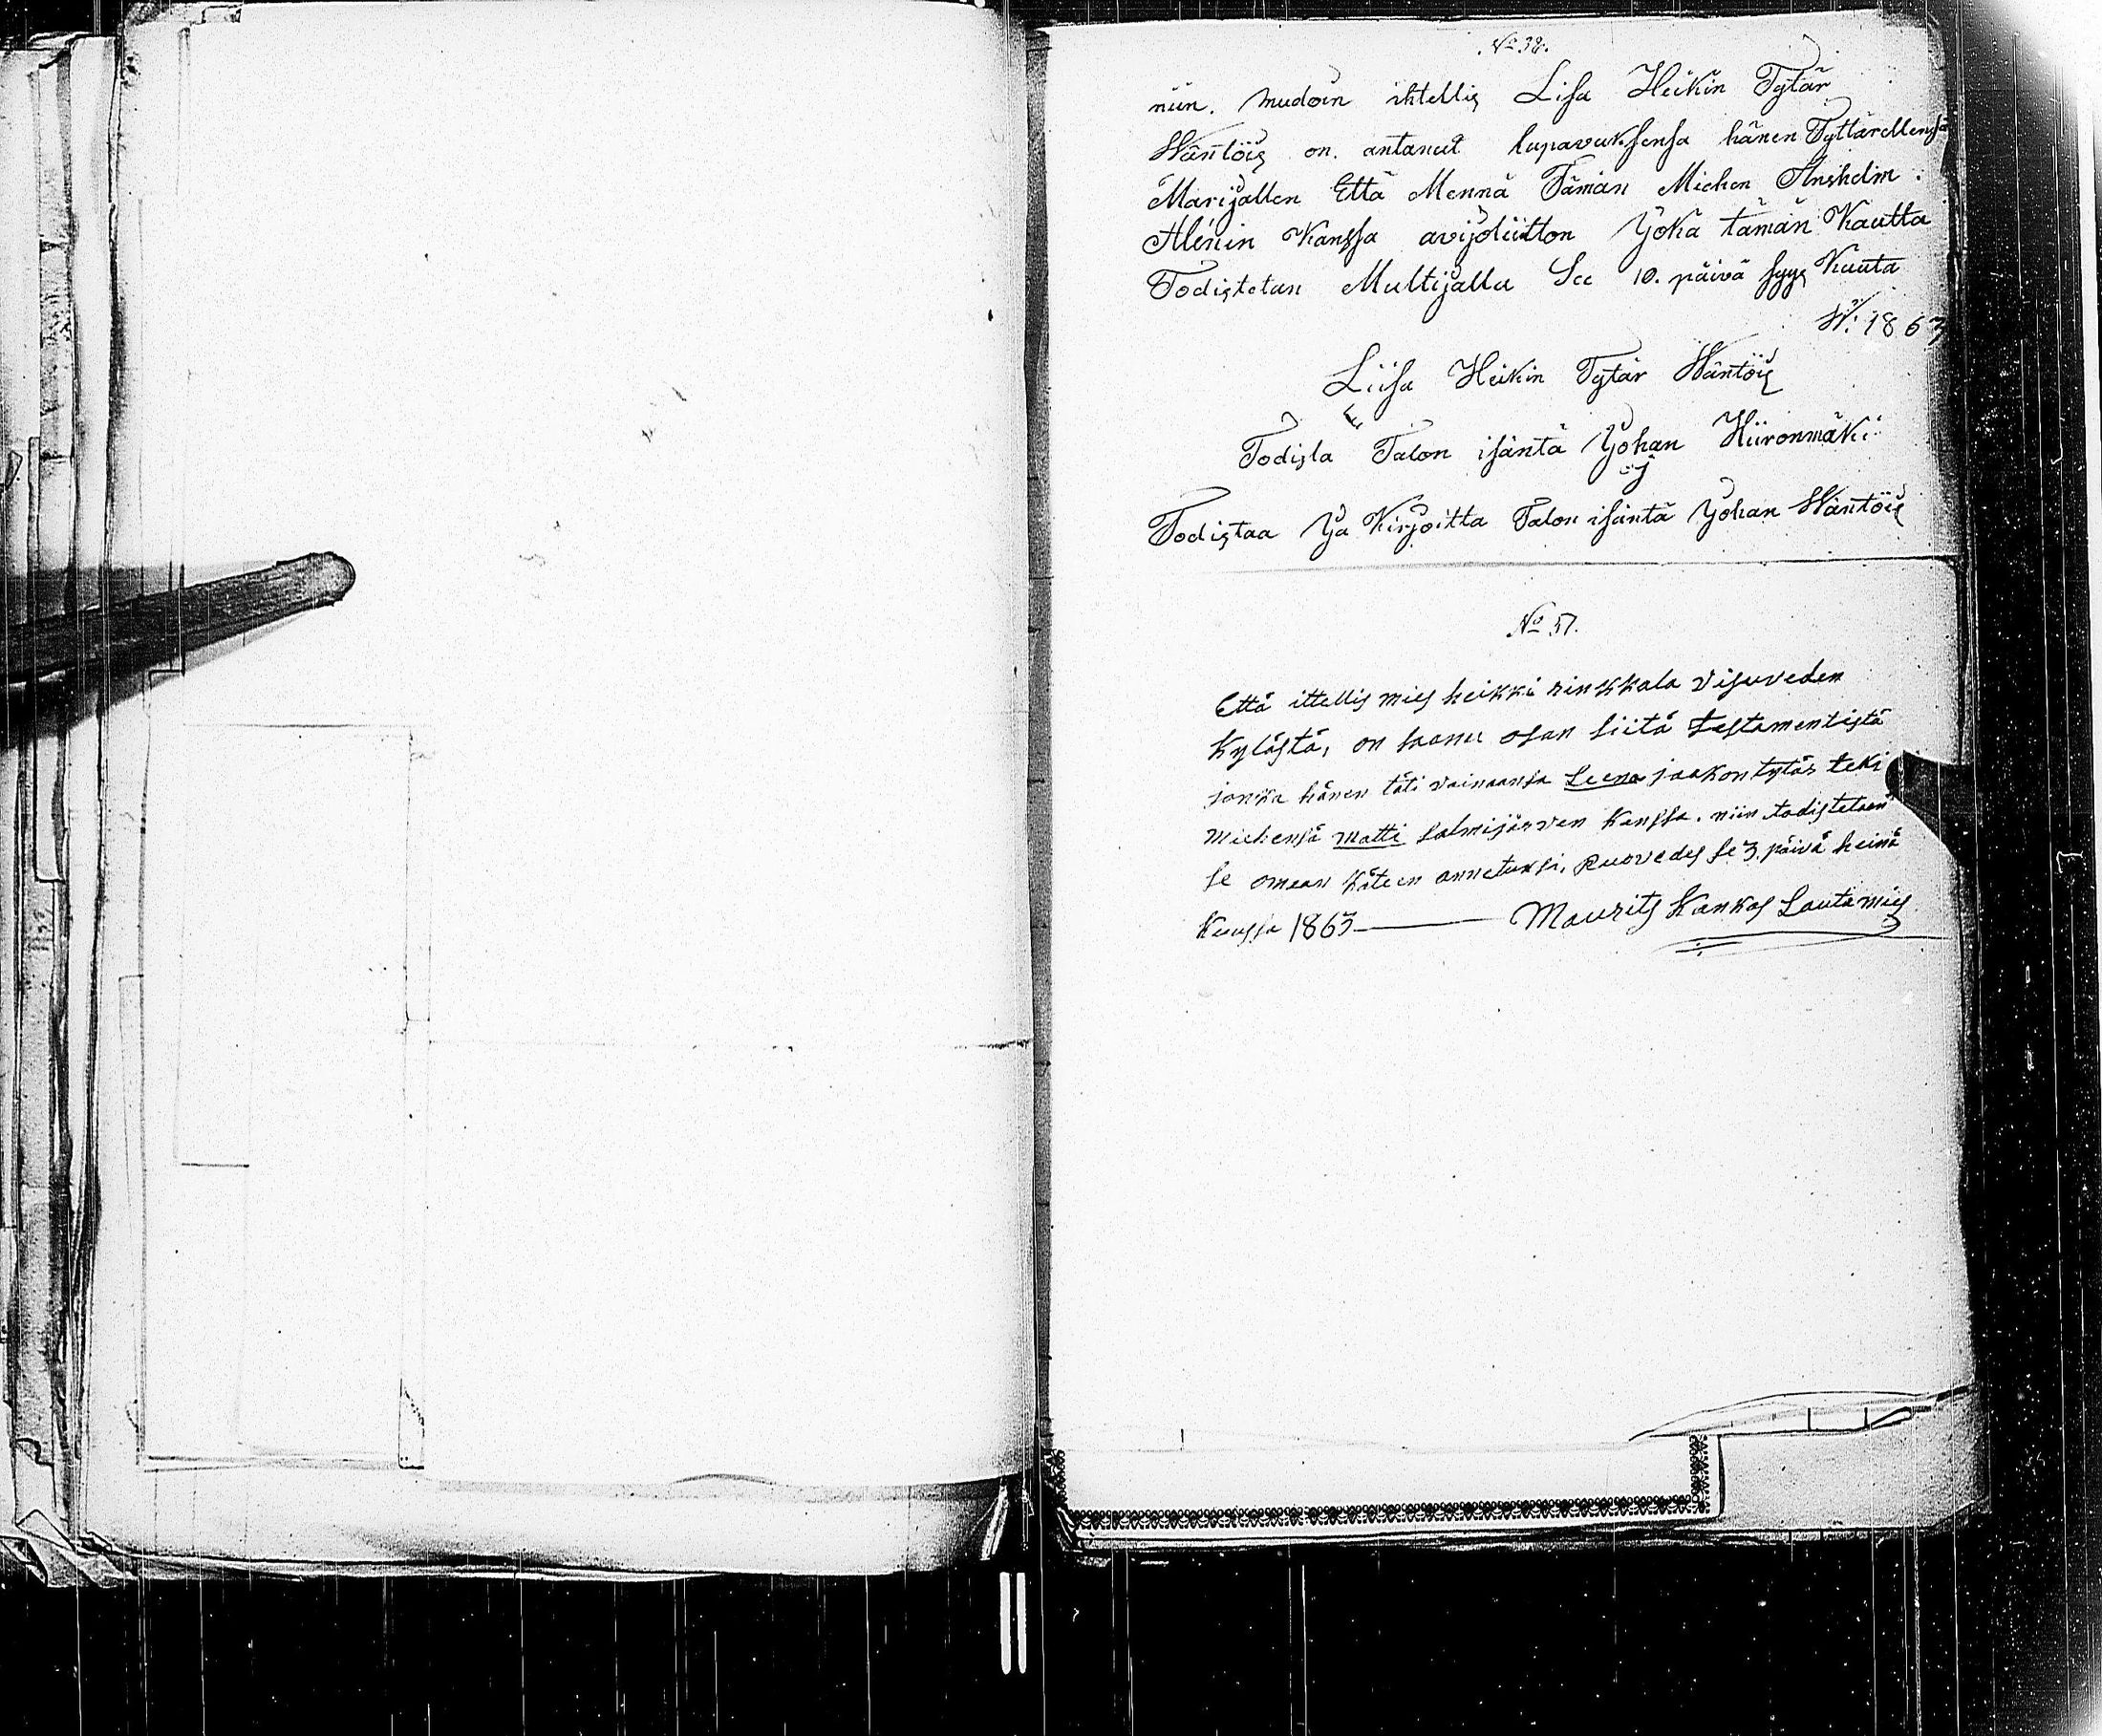 No 38.
niin. mudoin ihtellis Lisa Heikin Tytär
Wäntöis on. antanut lupavuksensa hänen Tyttärellensä
Marijallen Että Mennä Tämän Miehen Anshelm.
Alenin Kanssa avijoliitton Joka tämän Kautta
Todistetan Multijalla See 10. päivä syys Kuuta
W. 1863
Liisa Heikin Tytär Wäntöis
Todista Talon isäntä Johan Hiironmäki
Todistaa Ja Kirjoitta Talon isäntä Johan Wäntöis
No 57.
Että ittellis mies heikki rinkkala visuveden
Kylästä, on saanu osan siitä testamentistä
jonka hänen täti vainaansa Leena jaakon tytär teki
miehensä matti salmijärven kanssa. niin todistetaan
se omaan käteen annetuksi, Ruovedes se 3. päivä heinä
Kuussa 1863 Maurits Kankas Lautamies